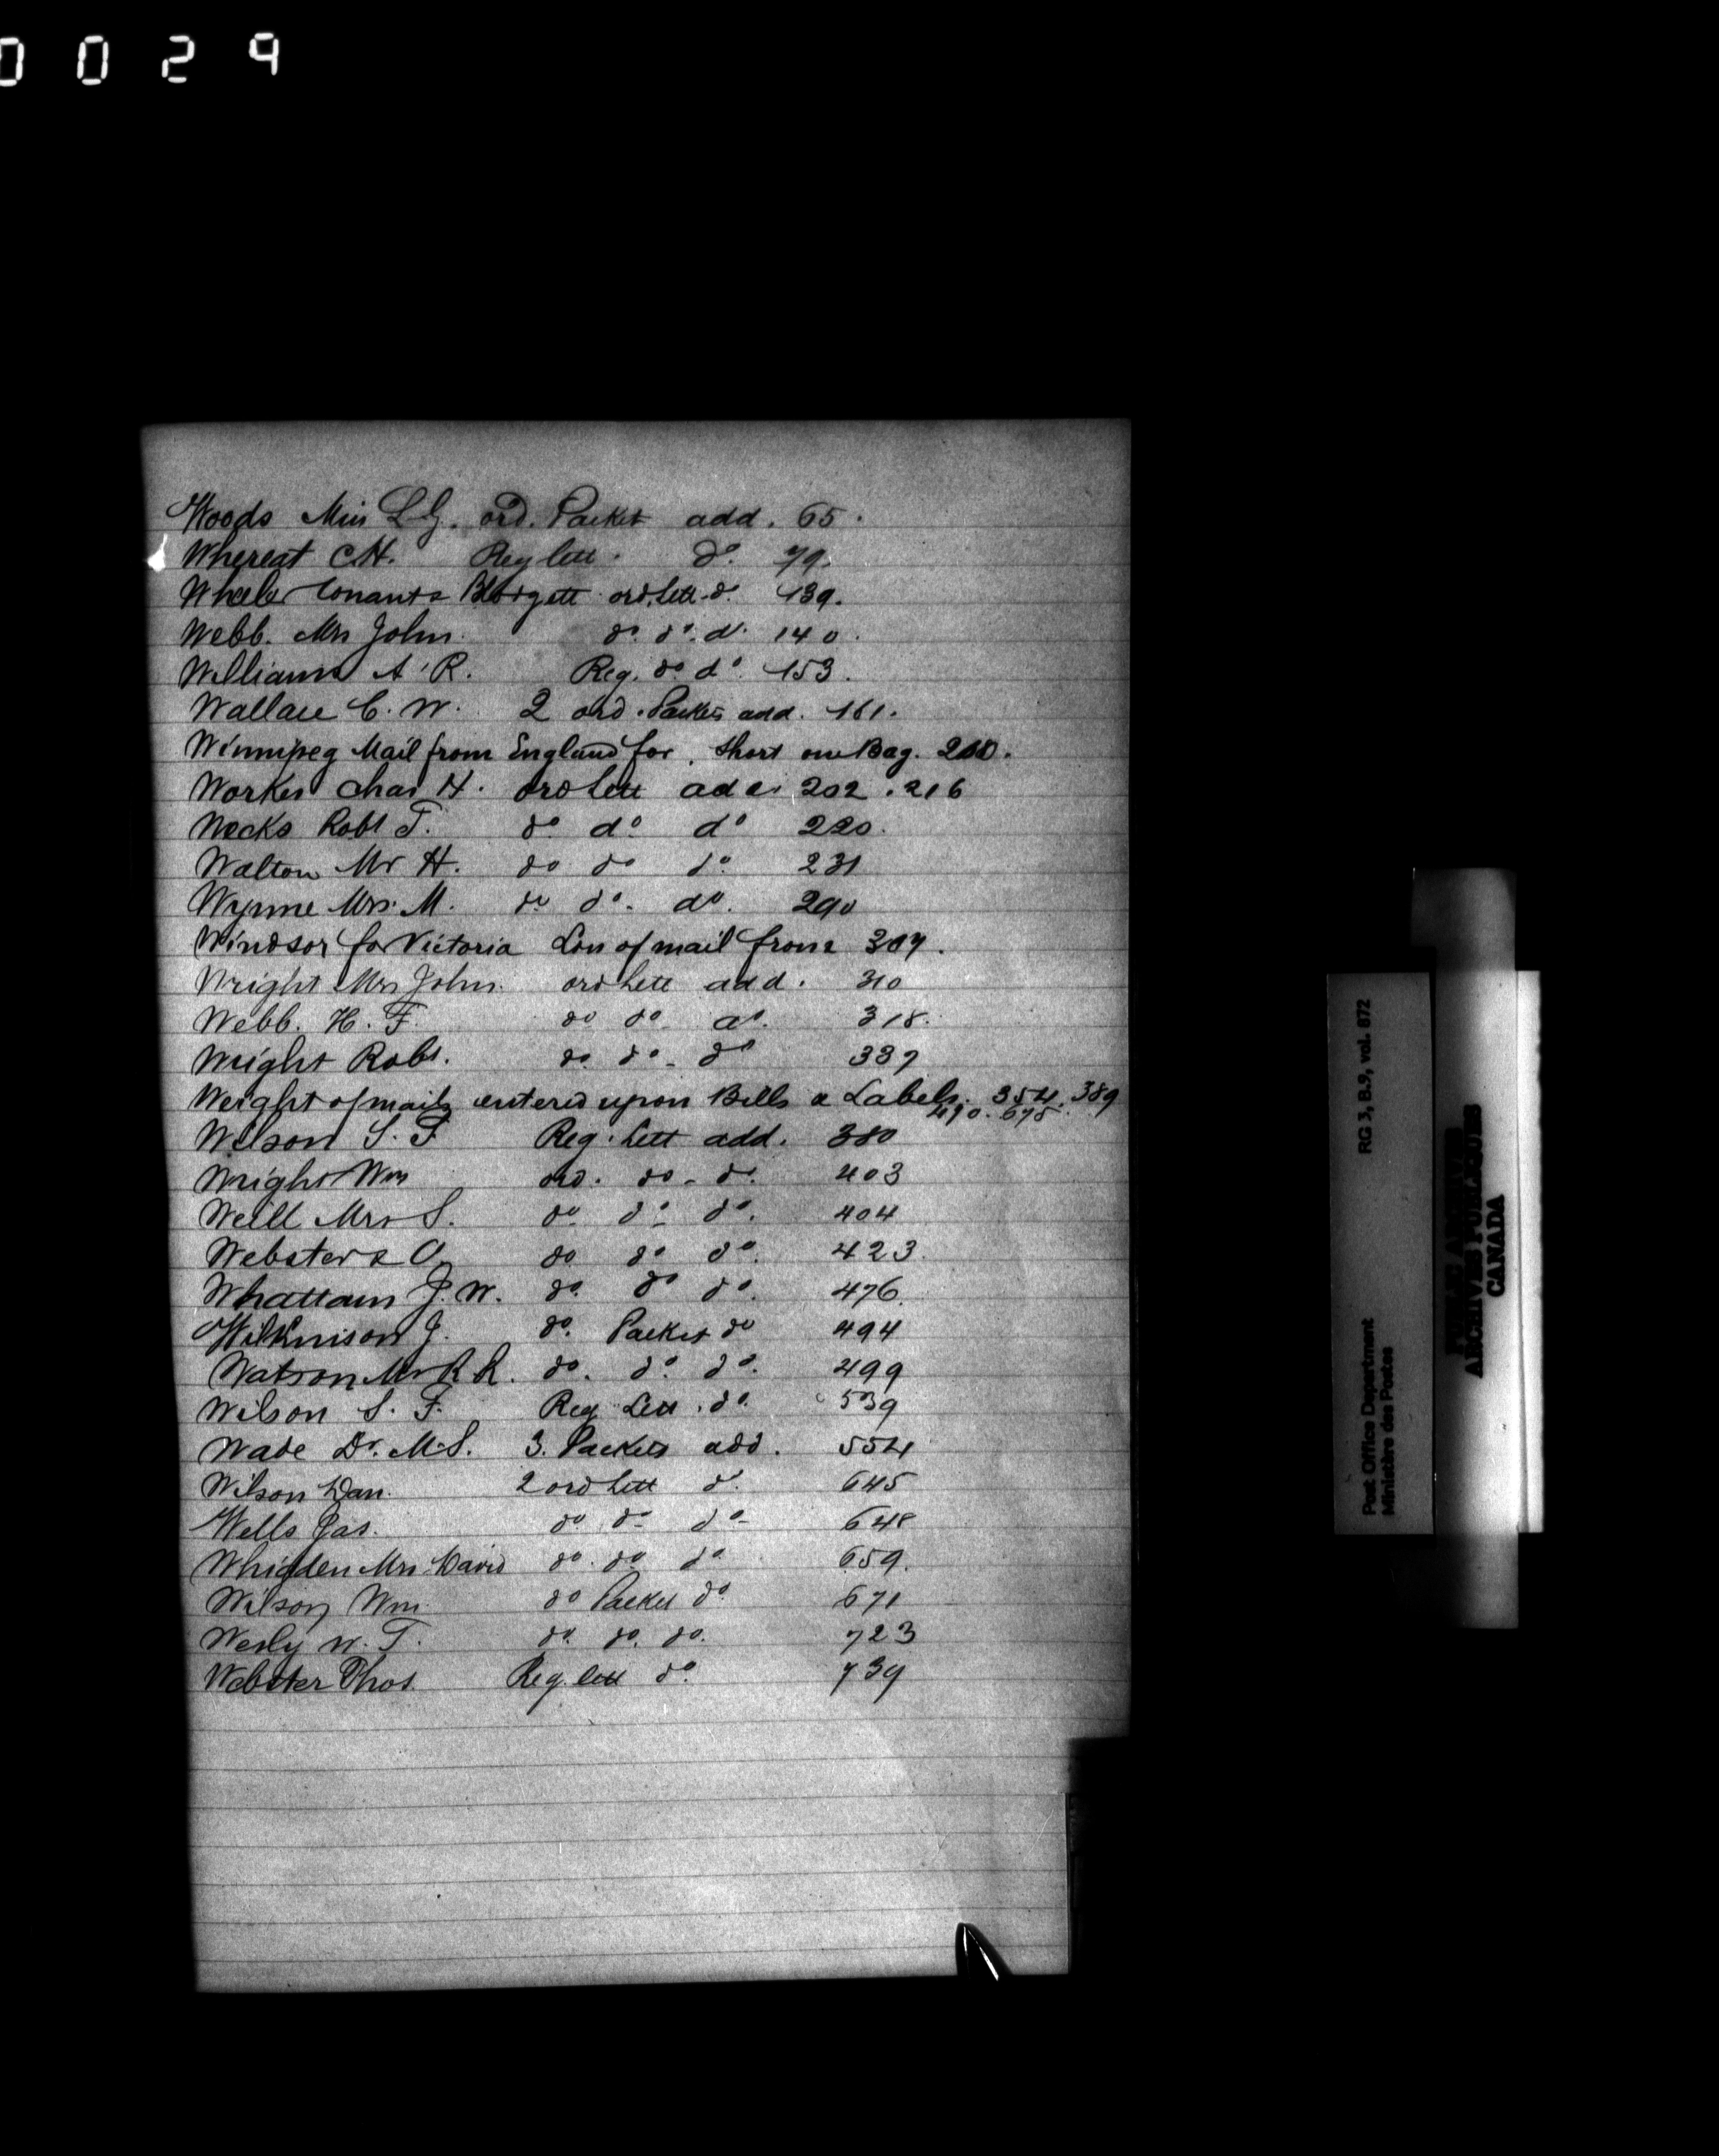 0029
Woods Miss L.G. ord. Packet add. 65.
Whereat C.H. Reg lett. do. 79.
Wheeler Conant & Blodgett ord. Lett. do. 139.
Webb. Mrs John. do. do. do. 140.
Williams A. R. Reg. do do. 153.
Wallace C. W. 2 ord. Packets add. 161.
Winnipeg Mail from England for. Short one Bag.
Worker Chas H. ord Lett add. 202. 216
Robt T. do. do. do 220.
Walton Mr H. do do do. 231
Wynne Mrs. M. do do. do. 290
Windsor for Victoria Loss of mail from 307.
Wright Mrs John. ord Lett add. 310
Webb. H. F. do do. do. 318.
Wright Robt. do. do. do 337
Weight of mails entered upon Bills & Labels. 354. 389
490. 675.
Wilson S. F. Reg. Lett add. 380
Wright Wm ord. do. do. 403
Weill Mrs S. do do do. 404
Webster & Co do do do. 423.
Whattam J. W. do. do do. 476.
Wilkinson J. do. Packet do 494
Watson Mr R.R. do. do. do. 499
Wilson S. F. Reg Lett. do. 539
Wade Dr. M.S. 3. Packets add. 554
Wilson Dan. 2 ord Lett do. 645
Wells Jas. do do do 648
Whidden Mrs David do. do do 659.
Wilson Wm do Packet do. 671
W. T. do. do. do. 723
Webster Thos. Reg. lett do. 739
RG 3, B.9, vol. 872
Post Office Department
Ministère des Postes
PUBLIC ARCHIVES
ARCHIVES PUBLIQUES
CANADA